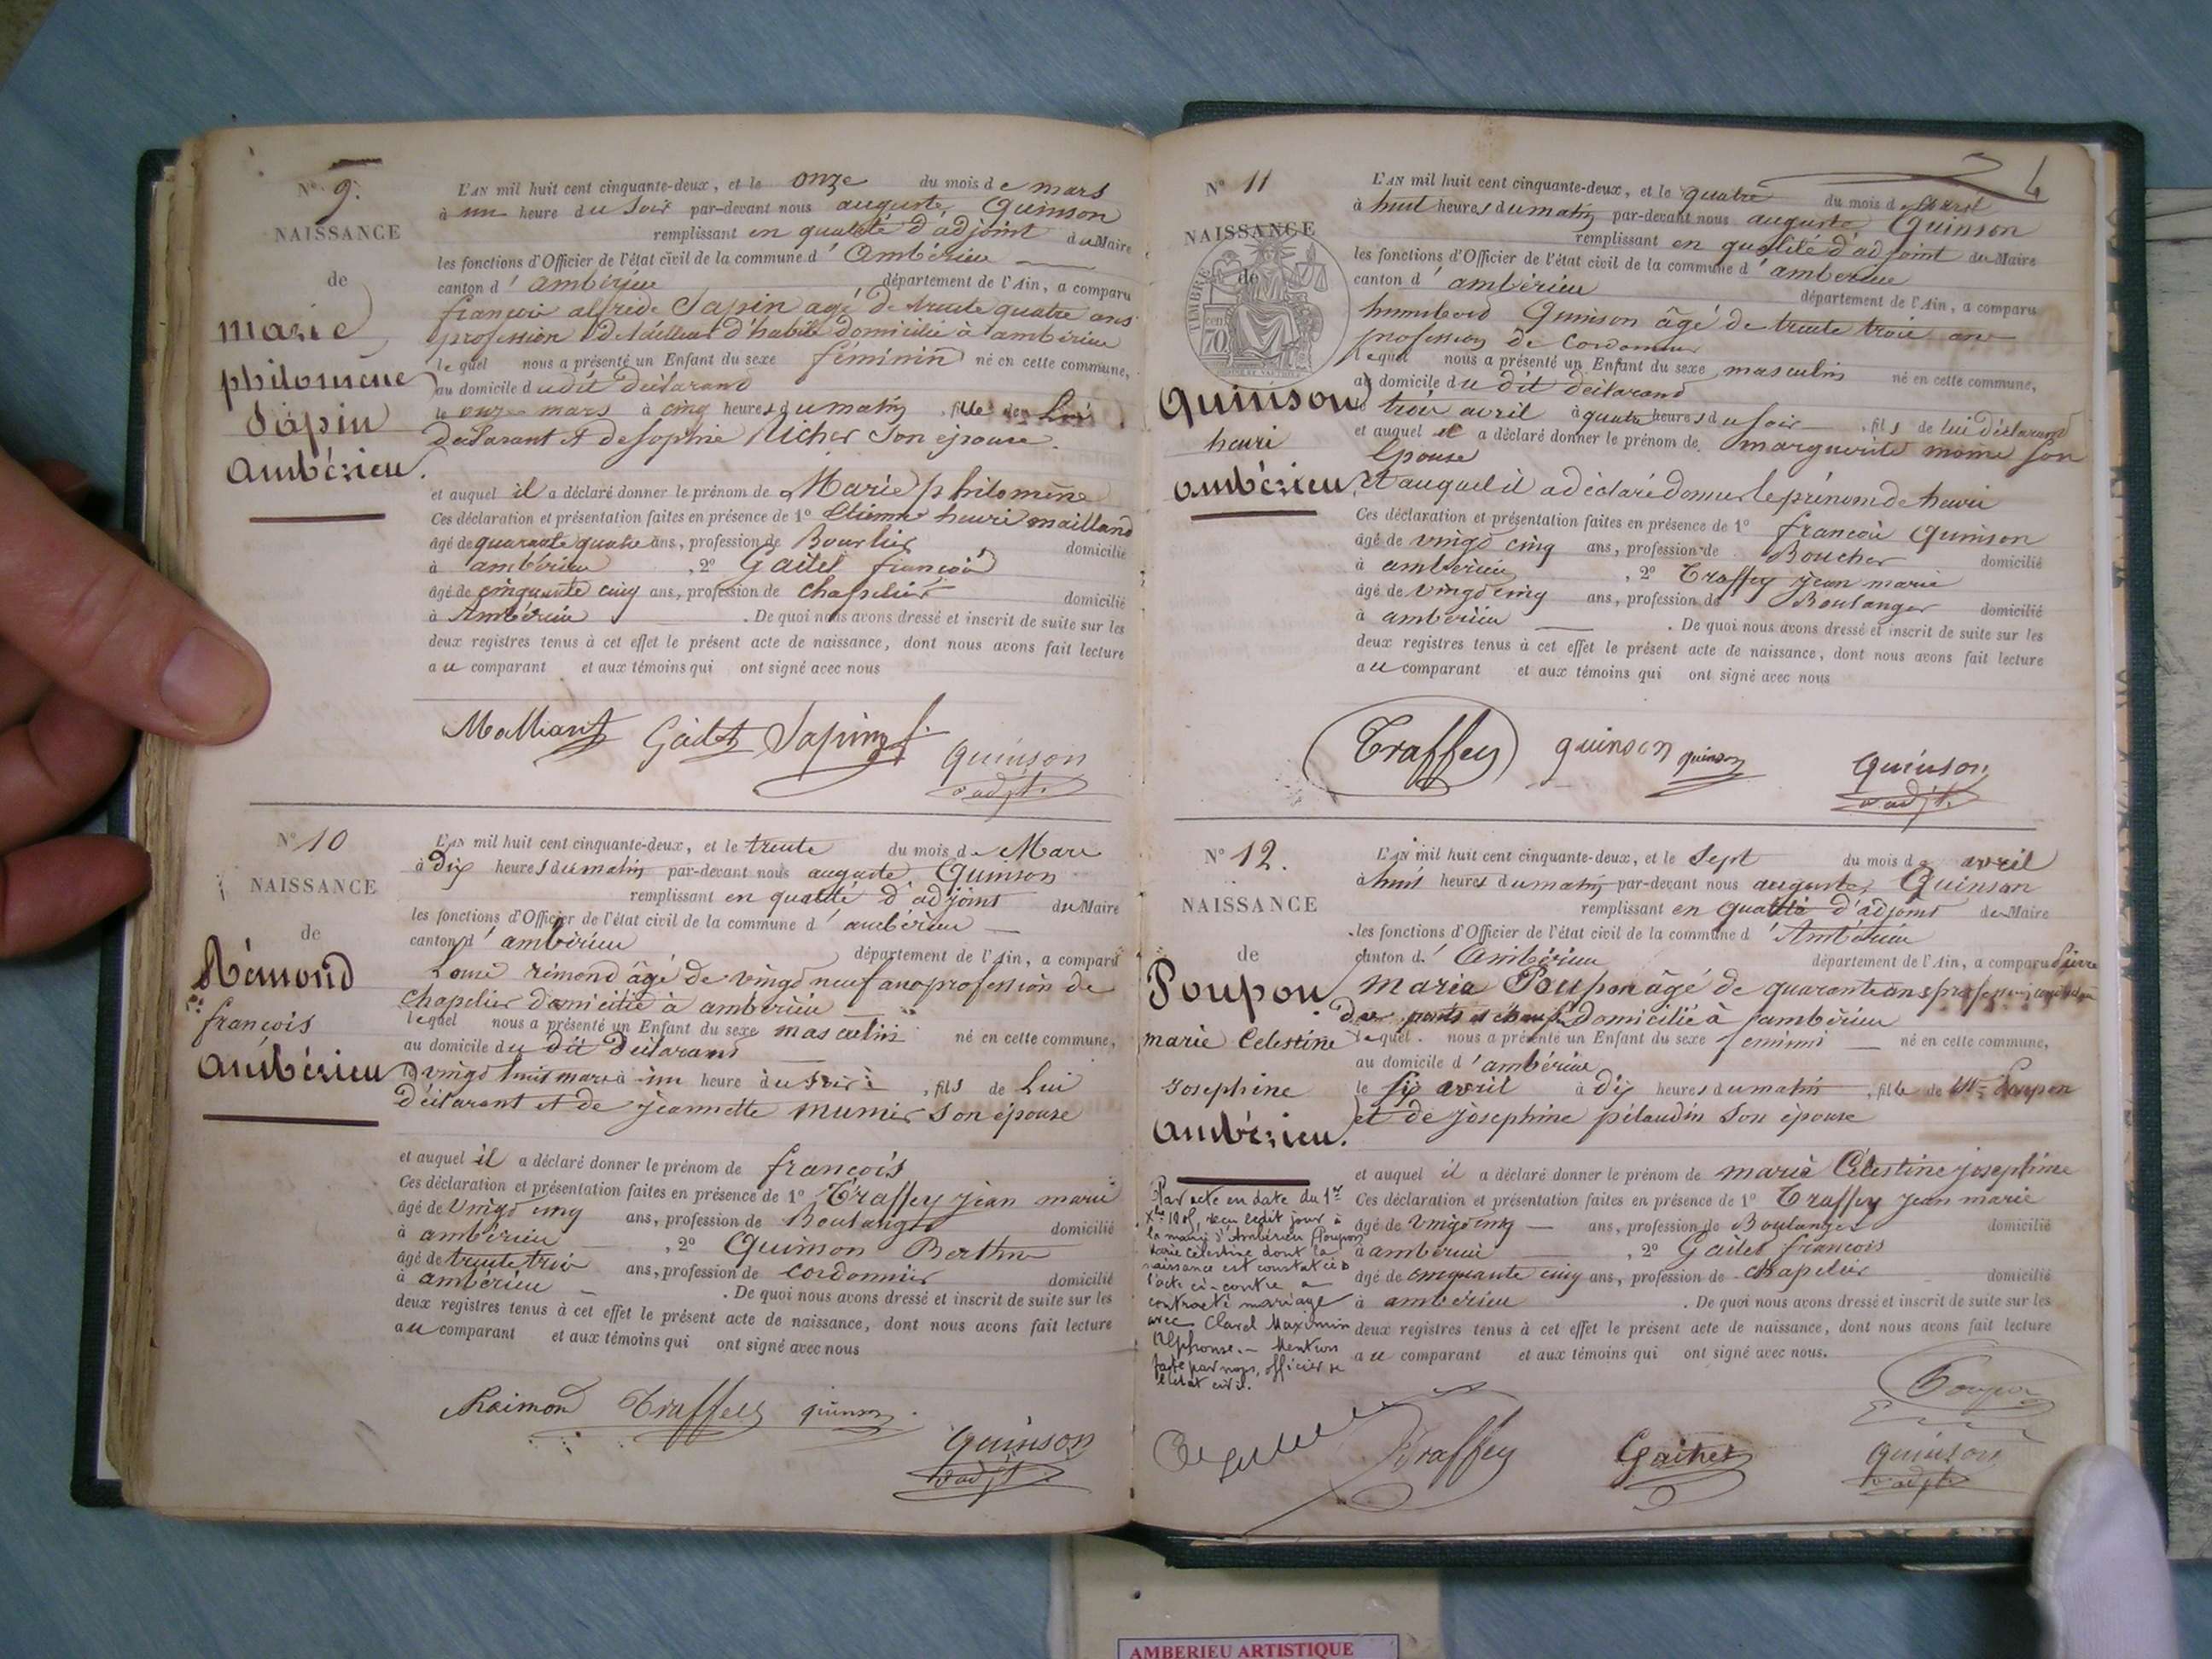 N° 9.
NAISSANCE
de
marie
philomène
Sapin
Ambérieu.
L'AN mil huit cent cinquante-deux, et le onze du mois de mars
à un heure du Soir par-devant nous auguste Quinson
remplissant en qualité d'adjoint du Maire
les fonctions d'Officier de l'état civil de la commune d'Ambérieu
canton d'ambérieu département de l'Ain, a comparu
françois alfred Sapin agé de trente quatre ans
profession de tailleur d'habits domicilié à ambérieu
lequel nous a présenté un Enfant du sexe féminin né en cette commune,
au domicile dudit déclarant
le onze mars à cinq heures du matin, fille de Lui
déclarant et de Sophie Richer Son épouse.
et auquel il a déclaré donner le prénom de Marie philomène
Ces déclaration et présentation faites en présence de 1° Etienne henri mailland
âgé de quarante quatre ans, profession de Bourlier domicilié
à ambérieu, 2° Gaillet françois
âgé de cinquante cinq ans, profession de chapelier domicilié
à Ambérieu. De quoi nous avons dressé et inscrit de suite sur les
deux registres tenus à cet effet le présent acte de naissance, dont nous avons fait lecture
au comparant et aux témoins qui ont signé avec nous
Sapin f.
Quinson
adjt.
N° 10
NAISSANCE
de
Rémond
françois
Ambérieu
L'AN mil huit cent cinquante-deux, et le trente du mois de Mars
à Dix heures du matin par-devant nous auguste Quinson
remplissant en qualité d'adjoint du Maire
les fonctions d'Officier de l'état civil de la commune d'ambérieu
canton d'ambérieu département de l'Ain, a comparu
Louis rémond âgé de vingt neuf ans profession de
chapelier domicilié à ambérieu
lequel nous a présenté un Enfant du sexe masculin né en cette commune,
au domicile du dit Déclarant
le vingt huit mars à un heure du Soir, fils de Lui
déclarant et de jeannette munier Son épouse
et auquel il a déclaré donner le prénom de françois
Ces déclaration et présentation faites en présence de 1° Traffey jean marie
âgé de vingt cinq ans, profession de Boulanger domicilié
à ambérieu, 2° Quinson
âgé de trente trois ans, profession de cordonnier domicilié
à ambérieu. De quoi nous avons dressé et inscrit de suite sur les
deux registres tenus à cet effet le présent acte de naissance, dont nous avons fait lecture
au comparant et aux témoins qui ont signé avec nous
Raimond Traffey quinson
Quinson
adjt
4
N° 11
NAISSANCE
de
TIMBRE
70
Quinson
henri
ambérieu
L'AN mil huit cent cinquante-deux, et le quatre du mois d'avril
à huit heures du matin par-devant nous auguste Quinson
remplissant en qualité d'adjoint du Maire
les fonctions d'Officier de l'état civil de la commune d'ambérieu
canton d'ambérieu département de l'Ain, a comparu
Quinson âgé de trente trois ans
profession de Cordonnier
lequel nous a présenté un Enfant du sexe masculin né en cette commune,
au domicile du dit déclarant
le trois avril à quatre heures du soir, fils de lui déclarant
et auquel il a déclaré donner le prénom de marguerite son
Epouse
Et auquel il a déclaré donner le prénom de henri
Ces déclaration et présentation faites en présence de 1° françois Quinson
âgé de vingt cinq ans, profession de Boucher domicilié
à ambérieu, 2° Traffey jean marie
âgé de vingt cinq ans, profession de Boulanger domicilié
à ambérieu. De quoi nous avons dressé et inscrit de suite sur les
deux registres tenus à cet effet le présent acte de naissance, dont nous avons fait lecture
au comparant et aux témoins qui ont signé avec nous
Traffey quinson quinson
Quinson
adjt.
N° 12.
NAISSANCE
de
Poupon
marie Celestine
Josephine
Ambérieu.
L'AN mil huit cent cinquante-deux, et le Sept du mois d'avril
à huit heures du matin par-devant nous auguste Quinson
remplissant en qualité d'adjoint du Maire
les fonctions d'Officier de l'état civil de la commune d'Ambérieu
canton d'Ambérieu département de l'Ain, a comparu Pierre
maria Poupon âgé de quarante ans profession
des ponts et domicilié à ambérieu
lequel nous a présenté un Enfant du sexe feminin né en cette commune,
au domicile d'ambérieu
le six avril à dix heures du matin, fille de Poupon
et de josephine pélaudin Son épouse
et auquel il a déclaré donner le prénom de marie Célestine josephine
Ces déclaration et présentation faites en présence de 1° Traffey jean marie
âgé de vingt cinq ans, profession de Boulanger domicilié
à ambérieu, 2° Gaillet françois
âgé de cinquante cinq ans, profession de chapelier domicilié
à ambérieu. De quoi nous avons dressé et inscrit de suite sur les
deux registres tenus à cet effet le présent acte de naissance, dont nous avons fait lecture
au comparant et aux témoins qui ont signé avec nous.
Par acte en date du 1er
reçu ledit jour à
la mairie d'Ambérieu Poupon
Marie Célestine dont la
naissance est constatée
l'acte ci-contre a
contracté mariage
avec Clarel Maximin
Alphonse. - Mention
faite par nous, officier de
l'état civil.
Poupon
Traffey
Quinson
adjt.
AMBERIEU ARTISTIQUE